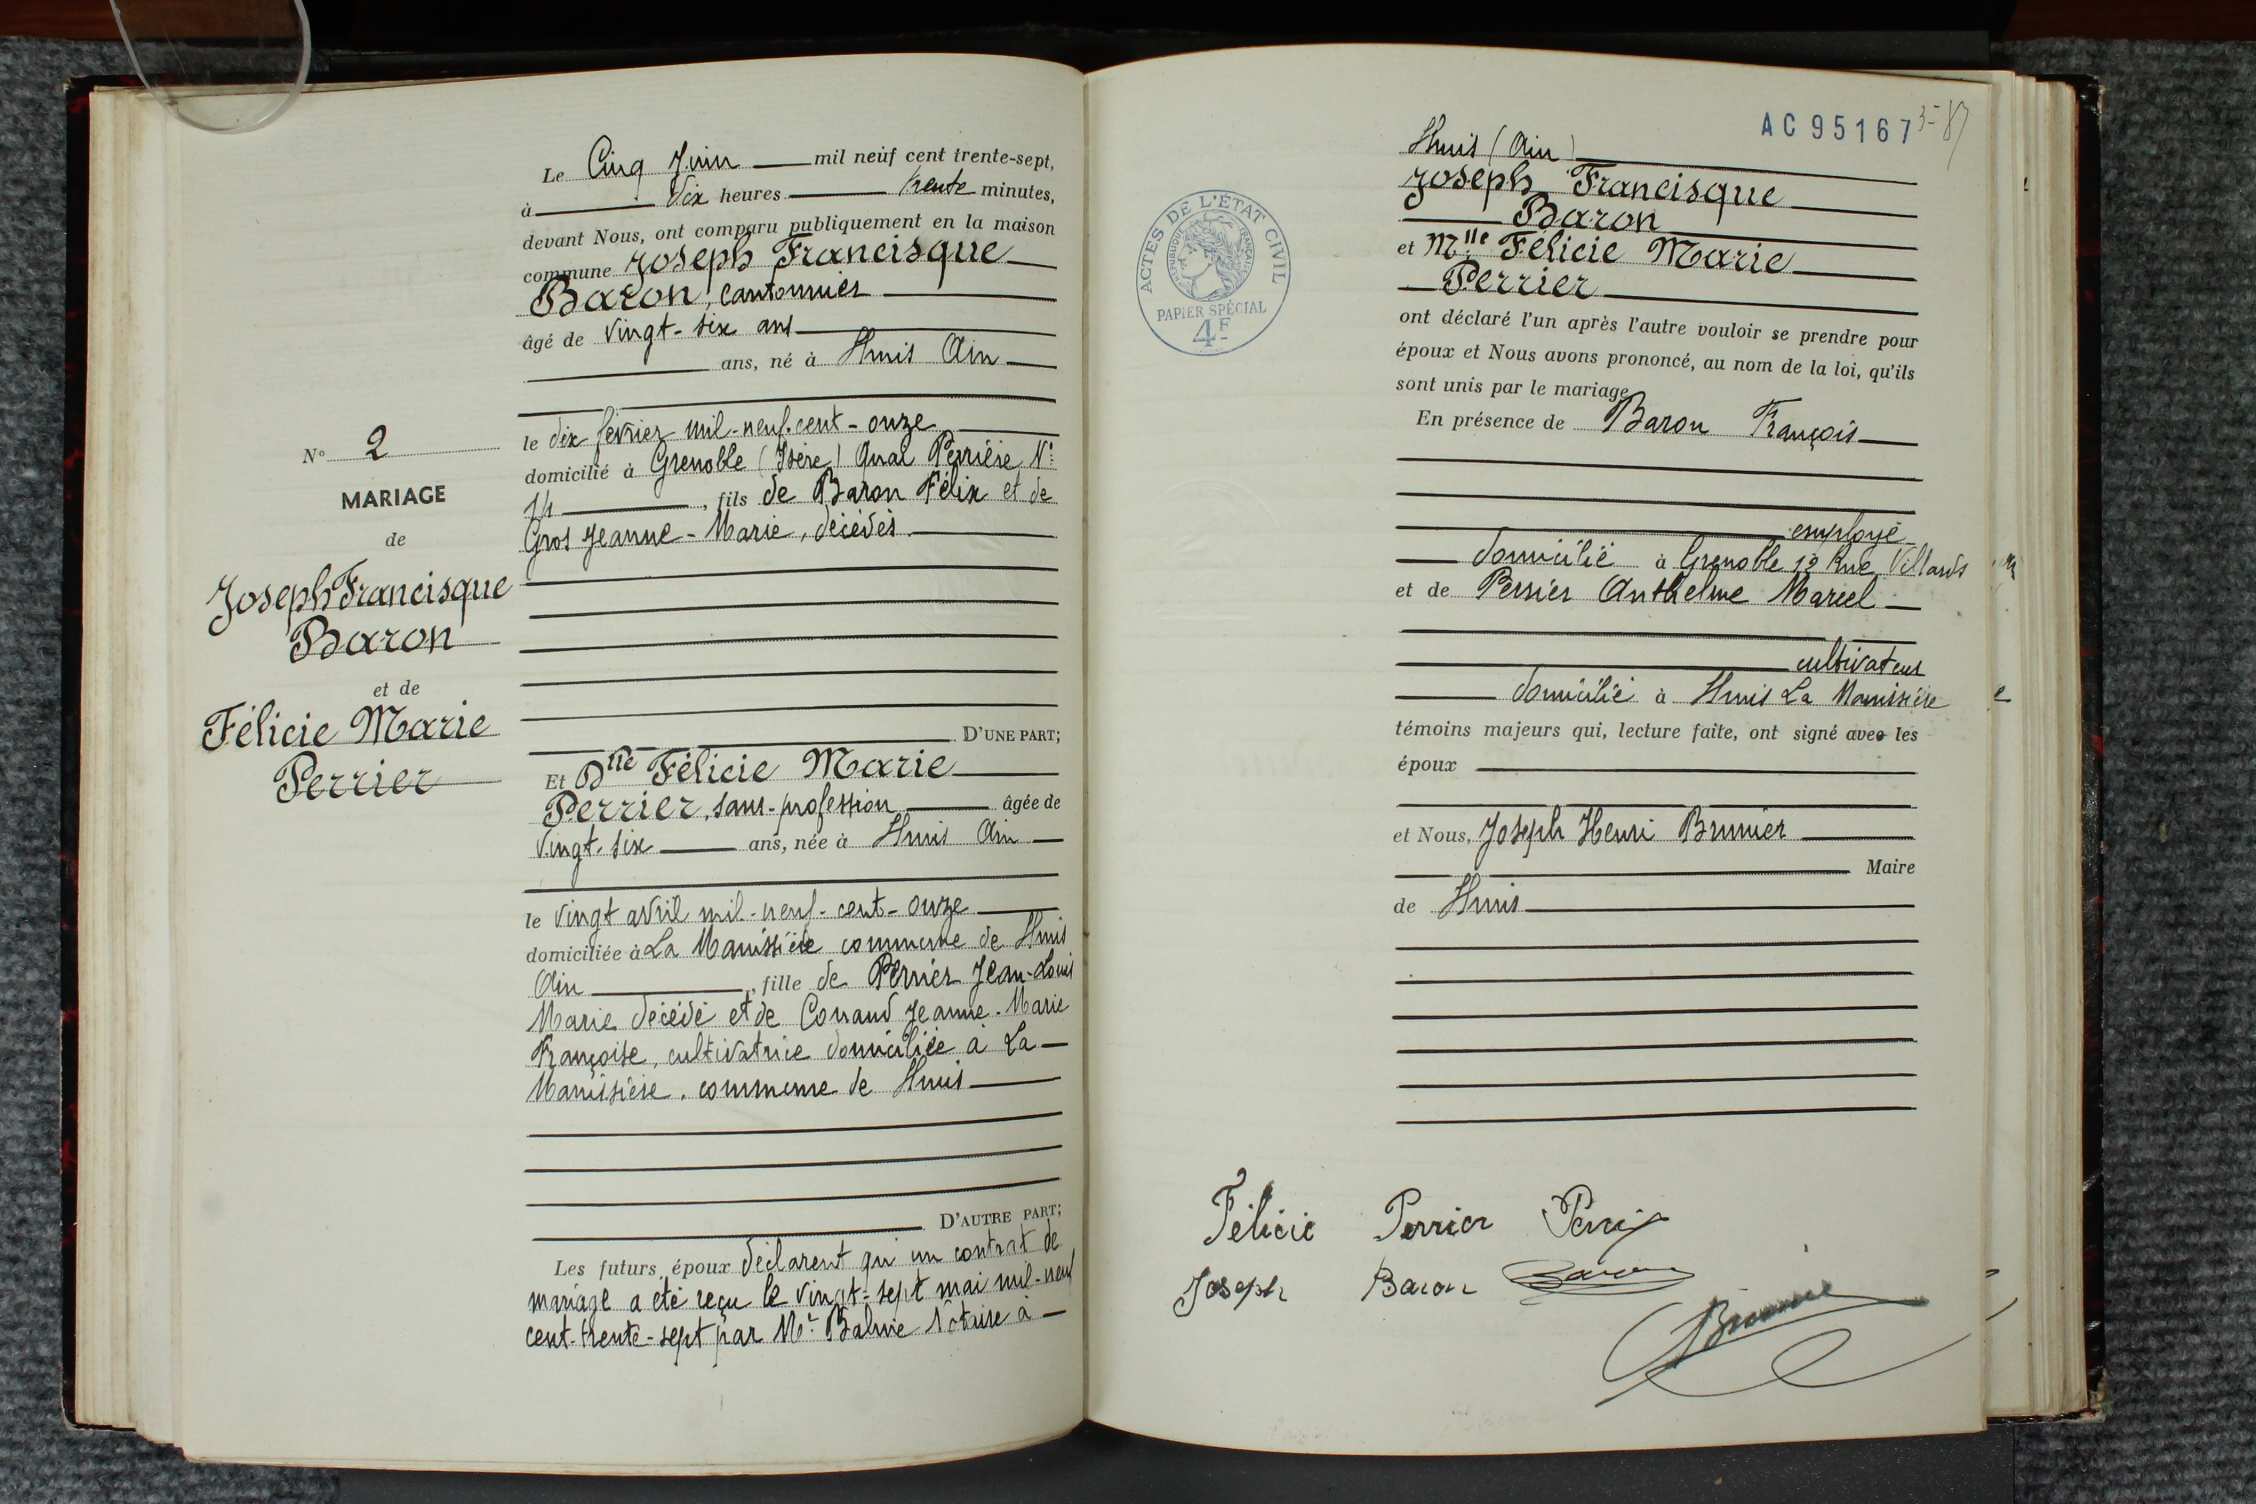 Le Cinq Juin mil neuf cent trente-sept,
à Dix heures trente minutes,
devant Nous, ont comparu publiquement en la maison
commune Joseph Francisque
Baron, cantonnier
âgé de vingt-six ans
ans, né à Lhuis Ain
le dix février mil-neuf-cent-onze
domicilié à Grenoble (Isère) Quai Perrière N°
14, fils de Baron Félix et de
Gros Jeanne-Marie, décédés.
N° 2
MARIAGE
de
Joseph Francisque
Baron
et de
Félicie Marie
Perrier
D'UNE PART;
Et Dlle Félicie Marie
Perrier, sans-profession âgée de
vingt-six ans, née à Lhuis Ain
le vingt avril mil-neuf-cent-onze
domiciliée à La Manissière commune de Lhuis
Ain, fille de Perrier Jean-Louis
Marie décédé et de Conand Jeanne-Marie
Françoise, cultivatrice domiciliée à La
Manissière, commune de Lhuis
D'AUTRE PART;
Les futurs époux déclarent qu'un contrat de
mariage a été reçu le vingt-sept mai mil-neuf
cent-trente-sept par Me Balme Notaire à
AC 95167
Lhuis (Ain)
Joseph Francisque
Baron
et Mlle Félicie Marie
Perrier
ACTES DE L'ÉTAT CIVIL
RÉPUBLIQUE FRANÇAISE
PAPIER SPÉCIAL
4F
ont déclaré l'un après l'autre vouloir se prendre pour
époux et Nous avons prononcé, au nom de la loi, qu'ils
sont unis par le mariage
En présence de Baron François
employé
domicilié à Grenoble 12 Rue Villards
et de Perrier Anthelme Marcel
cultivateur
domicilié à Lhuis La Manissière
témoins majeurs qui, lecture faite, ont signé avec les
époux
et Nous, Joseph Henri Brunier
Maire
de Lhuis
Félicie Perrier Perrier
Joseph Baron Baron
Brunier